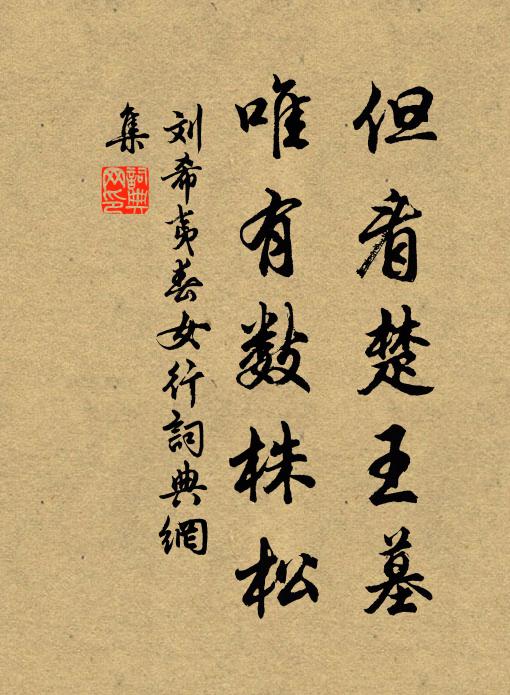 但看楚王墓
唯有数株松
刘希夷春女行詞典網
集
詞典
网印